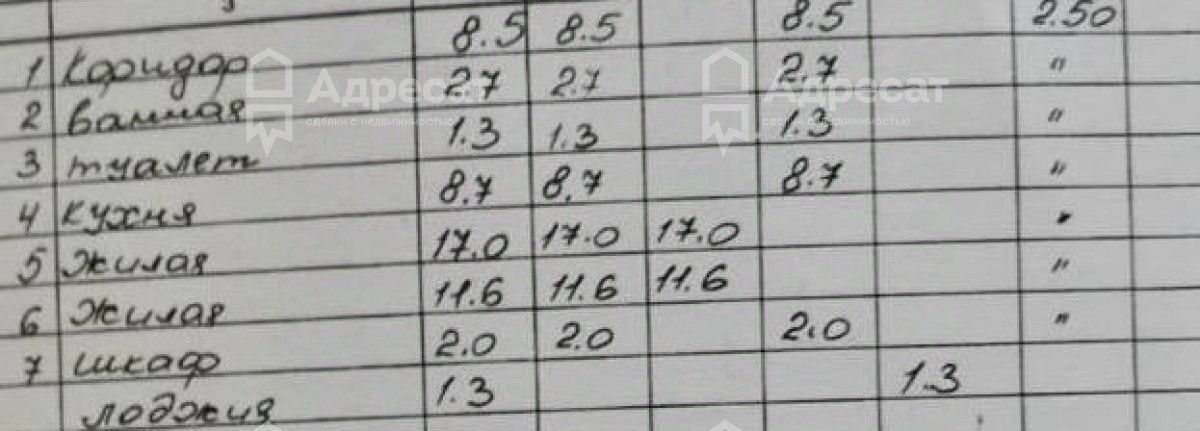 1 Коридор 8.5 8.5 8.5 2.50
2 ванная 2.7 2.7 2.7 "
3 туалет 1.3 1.3 1.3 "
4 кухня 8.7 8.7 8.7 "
5 жилая 17.0 17.0 17.0 "
6 жилая 11.6 11.6 11.6 "
7 шкаф 2.0 2.0 2.0 "
лоджия 1.3 1.3
Адресат
сделки с недвижимостью
Адресат
сделки с недвижимостью